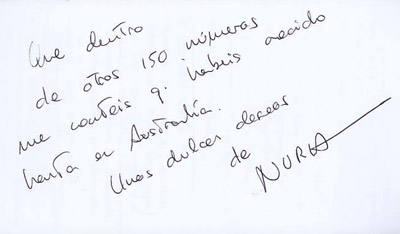 Que dentro
de otros 150 números
me conteis q. habeis crecido
hasta en Australia.
Unos dulces deseos
de
NURIA